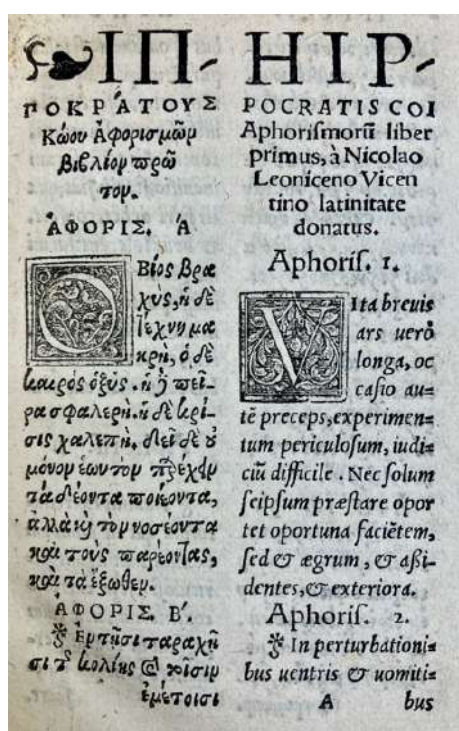 ΙΠ-
ΠΟΚΡΆΤΟΥΣ
Κώου Ἀφορισμῶν
Βιβλίον πρῶ
τον.
ἈΦΟΡΙΣ. Ἀ
Ὁ Βίος βρα
χὺς, ἡ δὲ
τέχνη μα
κρὴ, ὁ δὲ
καιρὸς ὀξύς. ἡ δὲ πεῖ-
ρα σφαλερὴ. ἡ δὲ κρί-
σις χαλεπὴ. δεῖ δὲ οὐ
μόνον ἑωυτὸν παρέχειν
τὰ δέοντα ποιέοντα,
ἀλλὰ καὶ τὸν νοσέοντα
καὶ τοὺς παρεόντας,
καὶ τὰ ἔξωθεν.
ἈΦΟΡΙΣ. Β'.
Ἐν τῇσι ταραχῇ
σι τῆς κοιλίης καὶ τοῖσιν
ἐμέτοισι
HIP-
POCRATIS COI
Aphoriſmorū liber
primus, à Nicolao
Leoniceno Vicen
tino latinitate
donatus.
Aphoriſ. 1.
Vita breuis
ars uerò
longa, oc
caſio au=
tē preceps, experimen=
tum periculoſum, iudi=
ciū difficile. Nec ſolum
ſeipſum præſtare opor
tet oportuna faciētem,
ſed & ægrum, & aßi=
dentes, & exteriora.
Aphoriſ. 2.
In perturbationi=
bus uentris & uomiti=
A bus